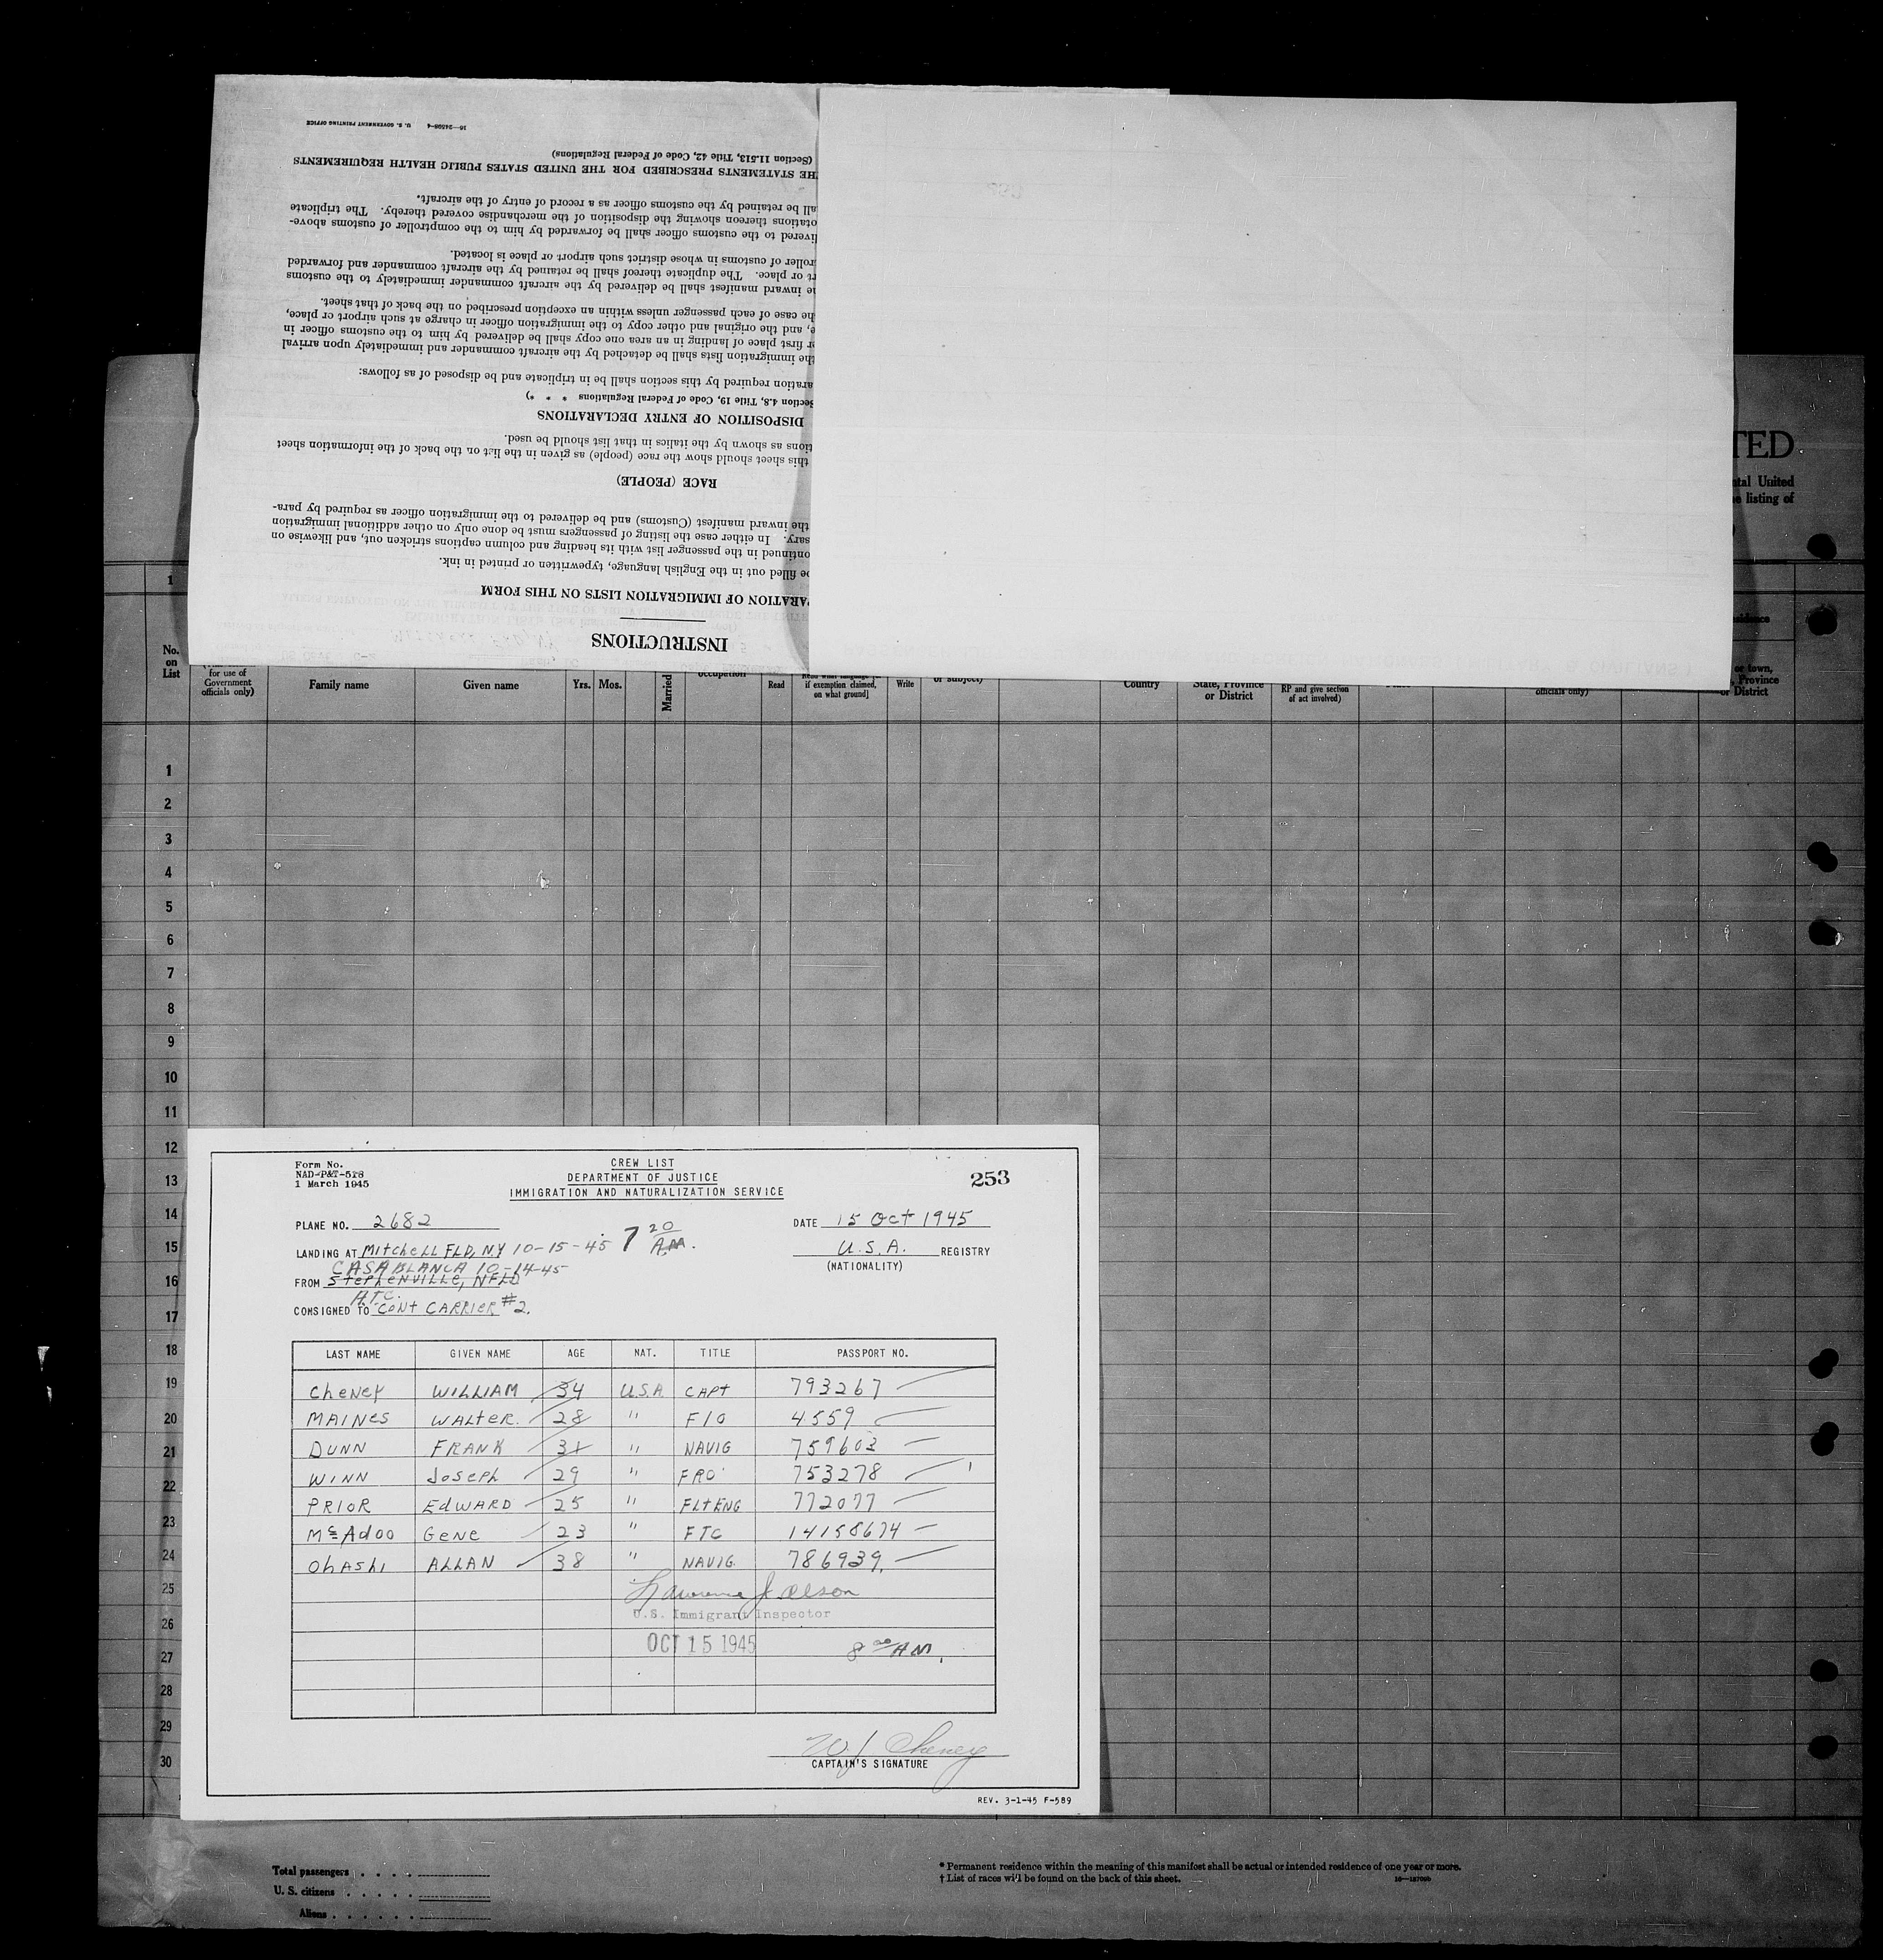 16—24598-4 U. S. GOVERNMENT PRINTING OFFICE
(Section 11.513, Title 42, Code of Federal Regulations)
HE STATEMENTS PRESCRIBED FOR THE UNITED STATES PUBLIC HEALTH REQUIREMENTS
all be retained by the customs officer as a record of entry of the aircraft.
otations thereon showing the disposition of the merchandise covered thereby. The triplicate
livered to the customs officer shall be forwarded by him to the comptroller of customs above-
roller of customs in whose district such airport or place is located.
rt or place. The duplicate thereof shall be retained by the aircraft commander and forwarded
he inward manifest shall be delivered by the aircraft commander immediately to the customs
he case of each passenger unless within an exception prescribed on the back of that sheet.
e, and the original and other copy to the immigration officer in charge at such airport or place,
er first place of landing in an area one copy shall be delivered by him to the customs officer in
the immigration lists shall be detached by the aircraft commander and immediately upon arrival
aration required by this section shall be in triplicate and be disposed of as follows:
Section 4.8, Title 19, Code of Federal Regulations * * *)
DISPOSITION OF ENTRY DECLARATIONS
tions as shown by the italics in that list should be used.
this sheet should show the race (people) as given in the list on the back of the information sheet
RACE (PEOPLE)
the inward manifest (Customs) and be delivered to the immigration officer as required by para-
sary. In either case the listing of passengers must be done only on other additional immigration
ontinued in the passenger list with its heading and column captions stricken out, and likewise on
be filled out in the English language, typewritten or printed in ink.
ARATION OF IMMIGRATION LISTS ON THIS FORM
INSTRUCTIONS
TED
tal United
e listing of
1
No. on List
for use of Government officials only)
Family name
Given name
Yrs.
Mos.
Married
occupation
Read
if exemption claimed, on what ground]
Write
or subject)
Country
State, Province or District
RP and give section of act involved)
officials only)
or town, Province or District
1
2
3
4
5
6
7
8
9
10
11
12
13
14
15
16
17
18
19
20
21
22
23
24
25
26
27
28
29
30
Form No.
NAD-P&T-518
1 March 1945
CREW LIST
DEPARTMENT OF JUSTICE
IMMIGRATION AND NATURALIZATION SERVICE
253
PLANE NO. 2682
DATE 15 Oct 1945
LANDING AT Mitchell FLD, NY 10-15-45 7 20 A.M.
U.S.A. REGISTRY
(NATIONALITY)
CASABLANCA 10-14-45
FROM Stephenville, NFLD
A.T.C.
CONSIGNED TO CONT CARRIER #2.
LAST NAME GIVEN NAME AGE NAT. TITLE PASSPORT NO.
Cheney WILLIAM 34 U.S.A. CAPt 793267
MAINES WALTER. 28 " F/O 4559
DUNN FRANK 31 " NAVIG 759603
WINN Joseph 29 " FRO 753278
PRIOR EdWARD 25 " FLt ENG 772077
McAdoo Gene 23 " FTC 14158674
OhAShi ALLAN 38 " NAVIG. 786939
Lawrence J. Olson
U.S. Immigrant Inspector
OCT 15 1945
8 00 AM.
W J Cheney
CAPTAIN'S SIGNATURE
REV. 3-1-45 F-589
Total passengers
U. S. citizens
Aliens
* Permanent residence within the meaning of this manifest shall be actual or intended residence of one year or more.
† List of races will be found on the back of this sheet.